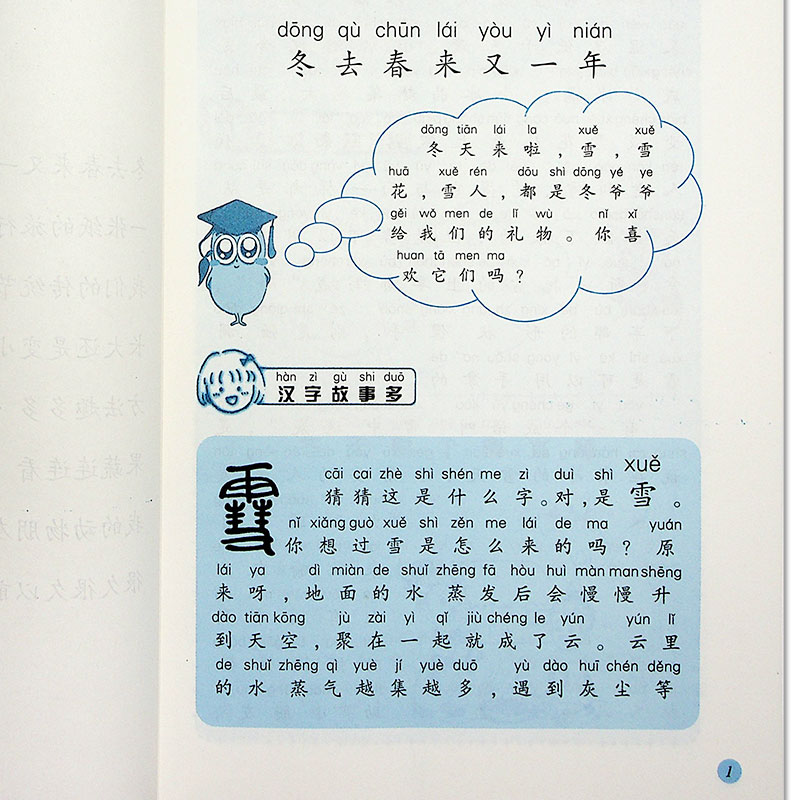 dōng qù chūn lái yòu yì nián
冬去春来又一年
dōng tiān lái la xuě xuě
冬天来啦，雪，雪
huā xuě rén dōu shì dōng yé ye
花，雪人，都是冬爷爷
gěi wǒ men de lǐ wù nǐ xǐ
给我们的礼物。你喜
huan tā men ma
欢它们吗？
hàn zì gù shi duō
汉字故事多
cāi cai zhè shì shén me zì duì shì xuě
猜猜这是什么字。对，是雪。
nǐ xiǎng guò xuě shì zěn me lái de ma yuán
你想过雪是怎么来的吗？原
lái ya dì miàn de shuǐ zhēng fā hòu huì màn man shēng
来呀，地面的水蒸发后会慢慢升
dào tiān kōng jù zài yì qǐ jiù chéng le yún yún lǐ
到天空，聚在一起就成了云。云里
de shuǐ zhēng qì yuè jí yuè duō yù dào huī chén děng
的水蒸气越集越多，遇到灰尘等
1